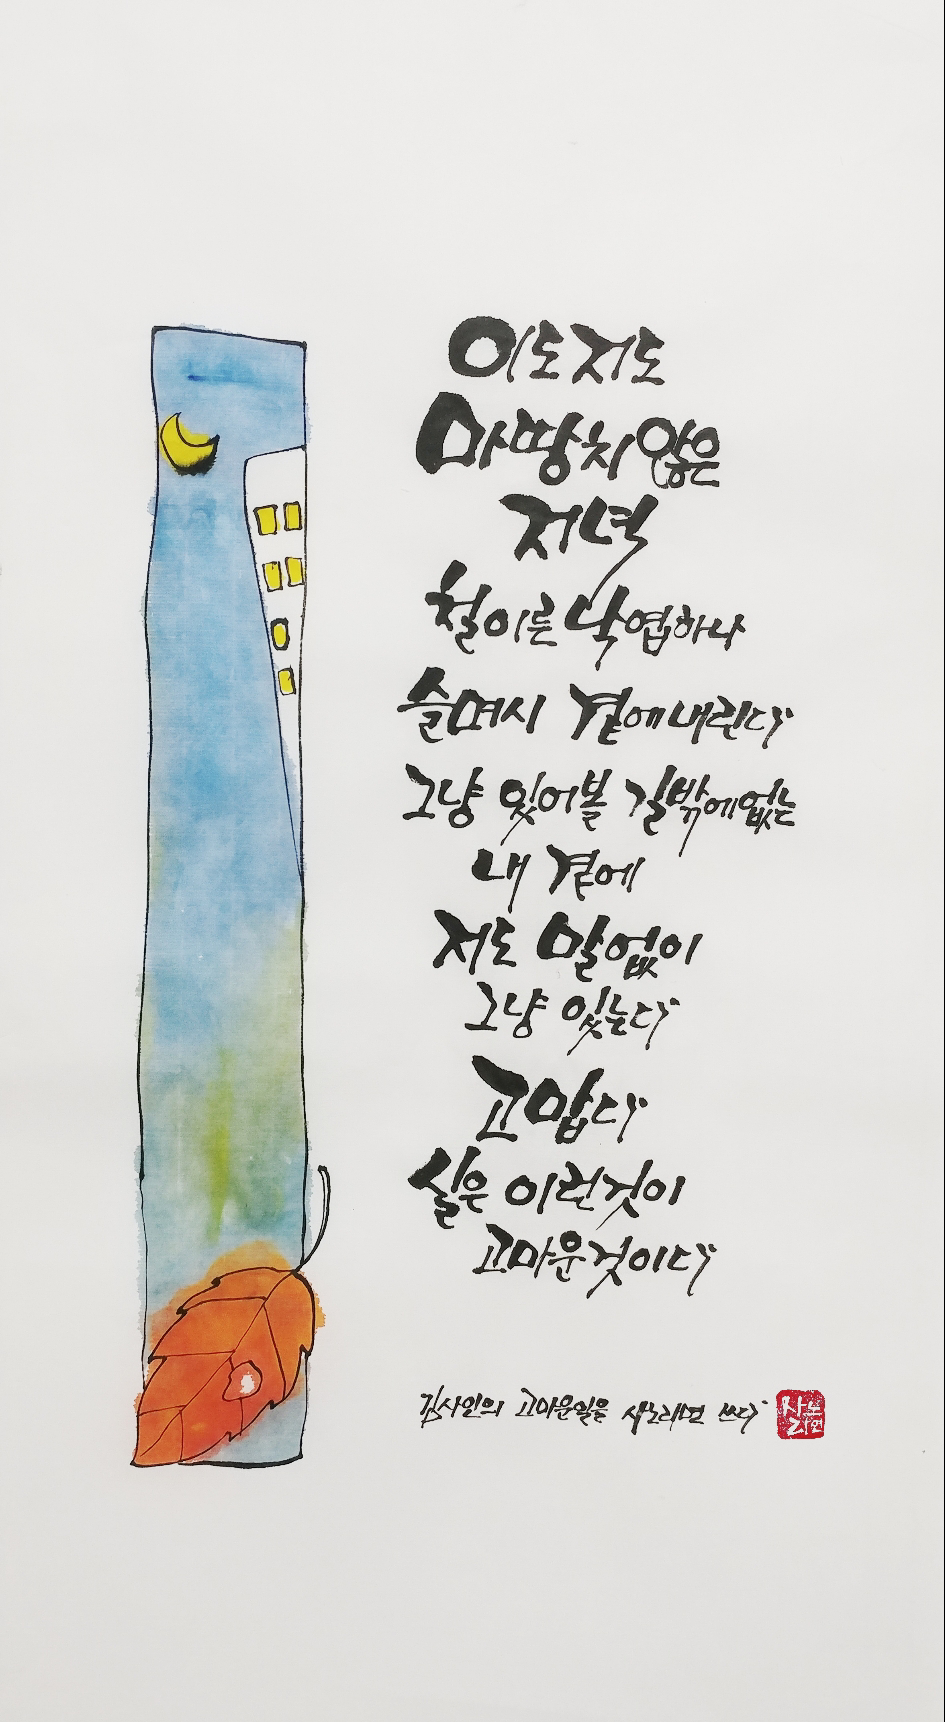 이도 저도
마땅치 않은
저녁
철이른 낙엽하나
슬며시 곁에 내린다
그냥 있어볼 길밖에 없는
내 곁에
저도 말없이
그냥 있는다
고맙다
실은 이런것이
고마운것이다
김사인의 고마운일을 사노라면 쓰다